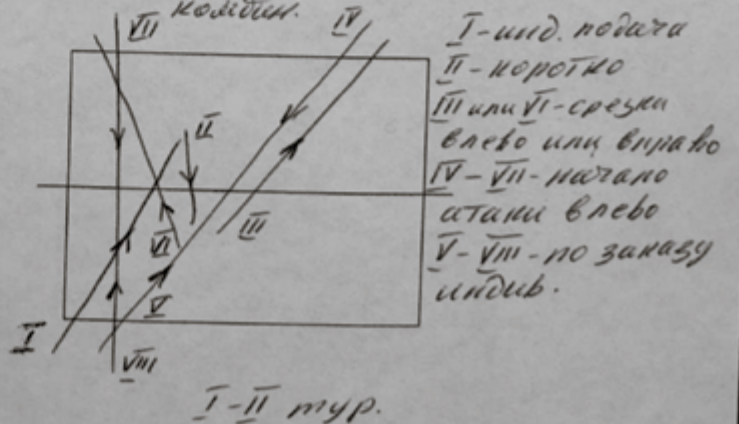 комбин.
VII
IV
II
III
VI
V
I
VIII
I - инд. подача
II - коротко
III или VI - срезки
влево или вправо
IV - VII - начало
атаки влево
V - VIII - по заказу
индив.
I - II тур.